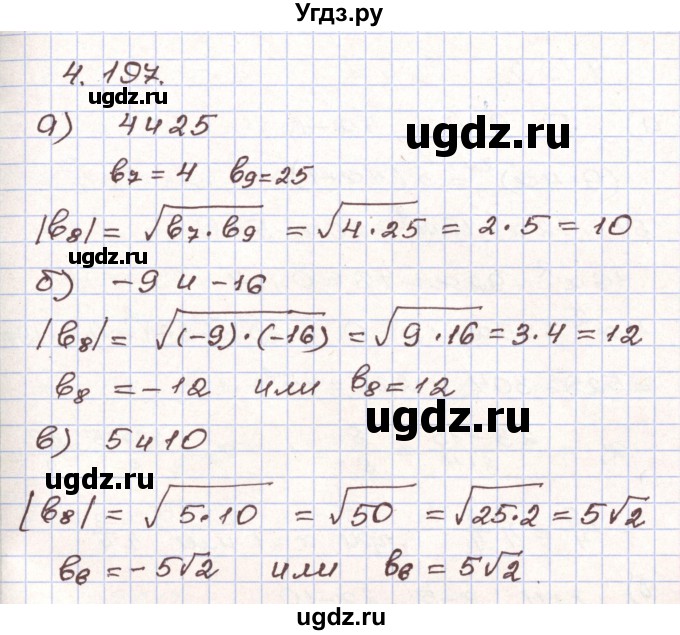 Угдз.ру
4.197.
ugdz.ru
а) 4 и 25
ugdz.ru
b₇ = 4 b₉ = 25
|b₈| = √(b₇·b₉) = √(4·25) = 2·5 = 10
ugdz.ru
б) -9 и -16
|b₈| = √((-9)·(-16)) = √(9·16) = 3·4 = 12
b₈ = -12 или b₈ = 12
ugdz.ru
в) 5 и 10
ugdz.ru
|b₈| = √(5·10) = √50 = √(25·2) = 5√2
b₆ = -5√2 или b₆ = 5√2.
ugdz.ru